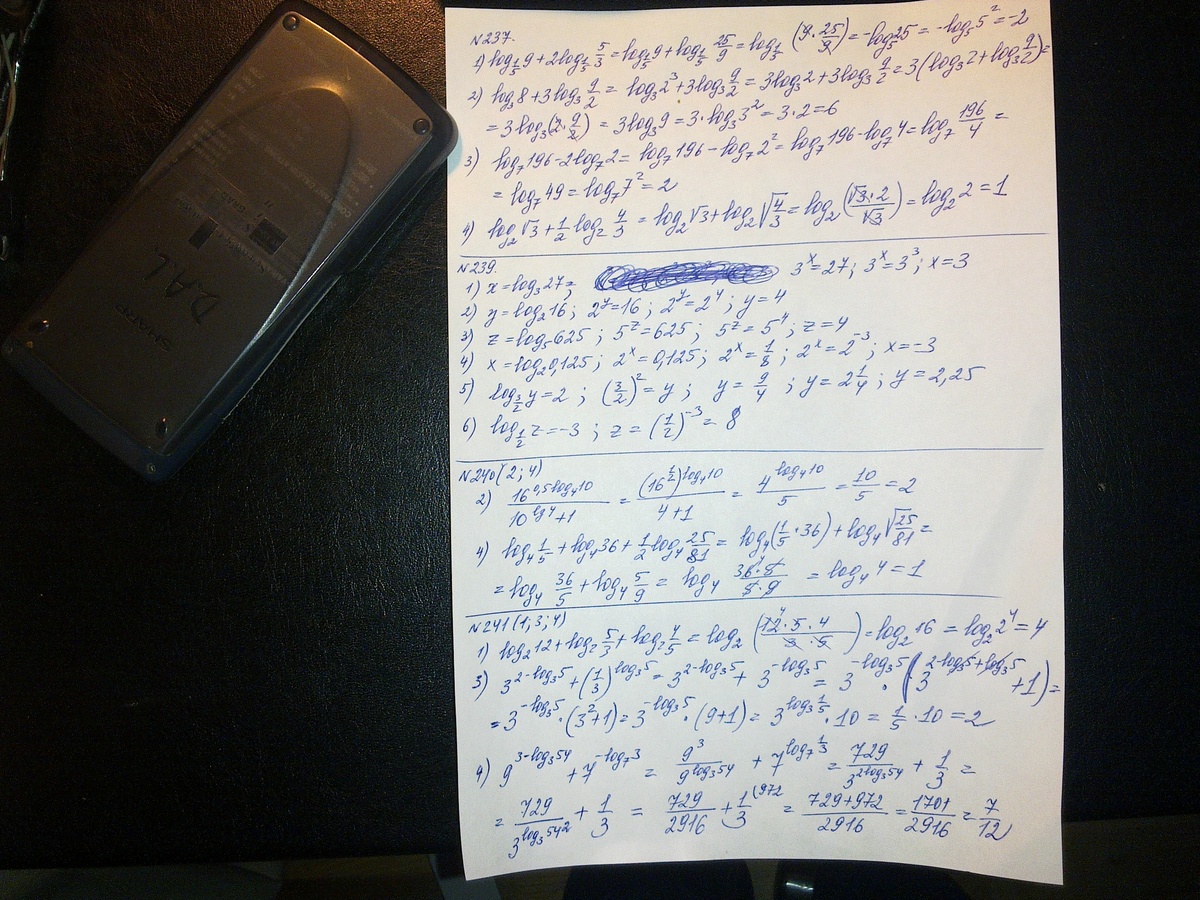 DAL
SHARP
N237.
1) log_{1/5} 9 + 2log_{1/5} 5/3 = log_{1/5} 9 + log_{1/5} 25/9 = log_{1/5} (9·25/9) = -log_5 25 = -log_5 5^2 = -2
2) log_3 8 + 3log_3 9/2 = log_3 2^3 + 3log_3 9/2 = 3log_3 2 + 3log_3 9/2 = 3(log_3 2 + log_3 9/2) =
= 3log_3 (2·9/2) = 3log_3 9 = 3·log_3 3^2 = 3·2 = 6
3) log_7 196 - 2log_7 2 = log_7 196 - log_7 2^2 = log_7 196 - log_7 4 = log_7 196/4 =
= log_7 49 = log_7 7^2 = 2
4) log_2 √3 + 1/2 log_2 4/3 = log_2 √3 + log_2 √(4/3) = log_2 (√3·2/√3) = log_2 2 = 1
N239.
1) x = log_3 27; 3^x = 27; 3^x = 3^3; x = 3
2) y = log_2 16; 2^y = 16; 2^y = 2^4; y = 4
3) z = log_5 625; 5^z = 625; 5^z = 5^4; z = 4
4) x = log_2 0,125; 2^x = 0,125; 2^x = 1/8; 2^x = 2^{-3}; x = -3
5) log_{3/2} y = 2; (3/2)^2 = y; y = 9/4; y = 2 1/4; y = 2,25
6) log_{1/2} z = -3; z = (1/2)^{-3} = 8
N240 (2; 4)
2) 16^{0,5log_4 10}/(10^{lg 4} + 1) = (16^{1/2})^{log_4 10}/(4+1) = 4^{log_4 10}/5 = 10/5 = 2
4) log_4 1/5 + log_4 36 + 1/2 log_4 25/81 = log_4 (1/5·36) + log_4 √(25/81) =
= log_4 36/5 + log_4 5/9 = log_4 36·5/5·9 = log_4 4 = 1
N241 (1; 3; 4)
1) log_2 12 + log_2 5/3 + log_2 4/5 = log_2 (12·5·4/3·5) = log_2 16 = log_2 2^4 = 4
3) 3^{2-log_3 5} + (1/3)^{log_3 5} = 3^{2-log_3 5} + 3^{-log_3 5} = 3^{-log_3 5}·(3^{2-log_3 5+log_3 5} + 1) =
= 3^{-log_3 5}·(3^2+1) = 3^{-log_3 5}·(9+1) = 3^{log_3 1/5}·10 = 1/5·10 = 2
4) 9^{3-log_3 54} + 7^{-log_7 3} = 9^3/9^{log_3 54} + 7^{log_7 1/3} = 729/3^{2log_3 54} + 1/3 =
= 729/3^{log_3 54^2} + 1/3 = 729/2916 + 1/3^{(972} = 729+972/2916 = 1701/2916 = 7/12